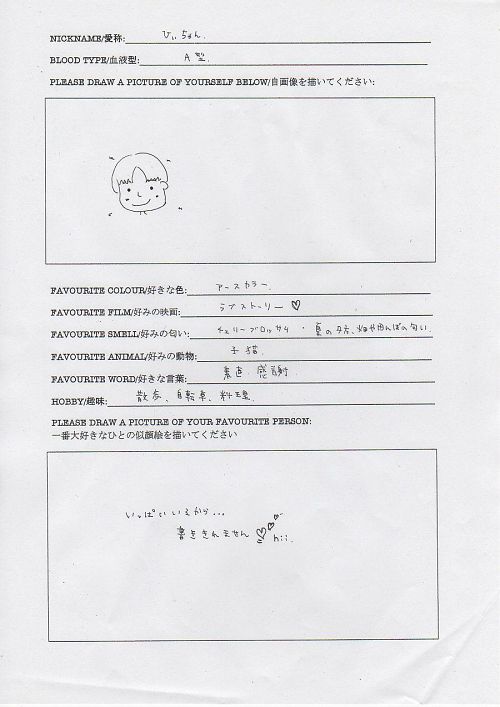 NICKNAME/愛称: ひぃちょん.
BLOOD TYPE/血液型: A型.
PLEASE DRAW A PICTURE OF YOURSELF BELOW/自画像を描いてください:
FAVOURITE COLOUR/好きな色: アースカラー.
FAVOURITE FILM/好みの映画: ラブストーリー♡
FAVOURITE SMELL/好みの匂い: チェリーブロッサム・夏の夕方、畑や田んぼの匂い
FAVOURITE ANIMAL/好みの動物: 子猫.
FAVOURITE WORD/好きな言葉: 素直 感謝
HOBBY/趣味: 散歩、自転車、料理.
PLEASE DRAW A PICTURE OF YOUR FAVOURITE PERSON:
一番大好きなひとの似顔絵を描いてください
いっぱいいるから...
書ききれません♡
hii.